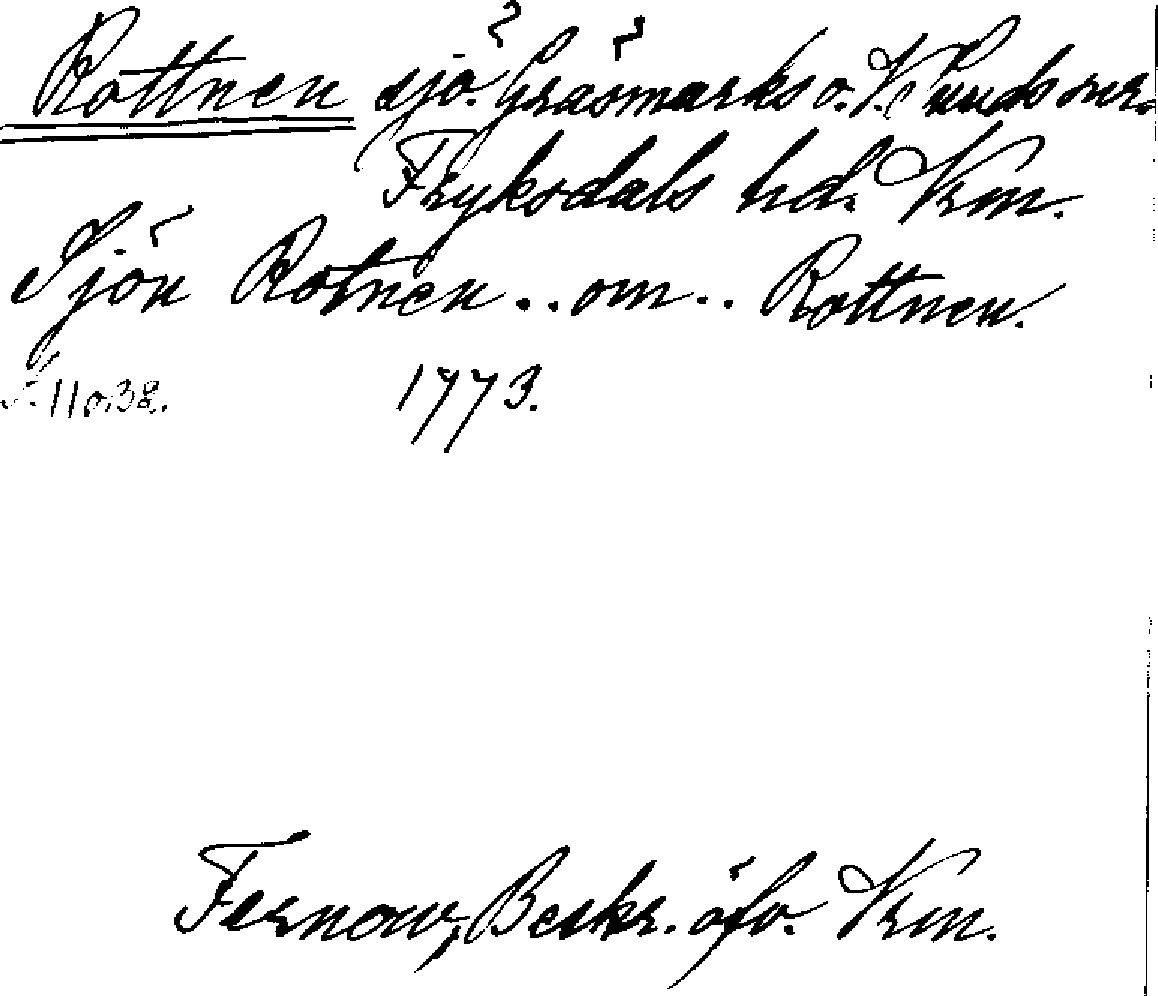 Rottnen sjö. Gräsmarks o. V. Ämtds snr.
Fryksdals hd. Vrm.
Sjön Rotnen .. om .. Rottnen.
s. 110.38. 1773.
Fernow, Beskr. öfv. Vrm.